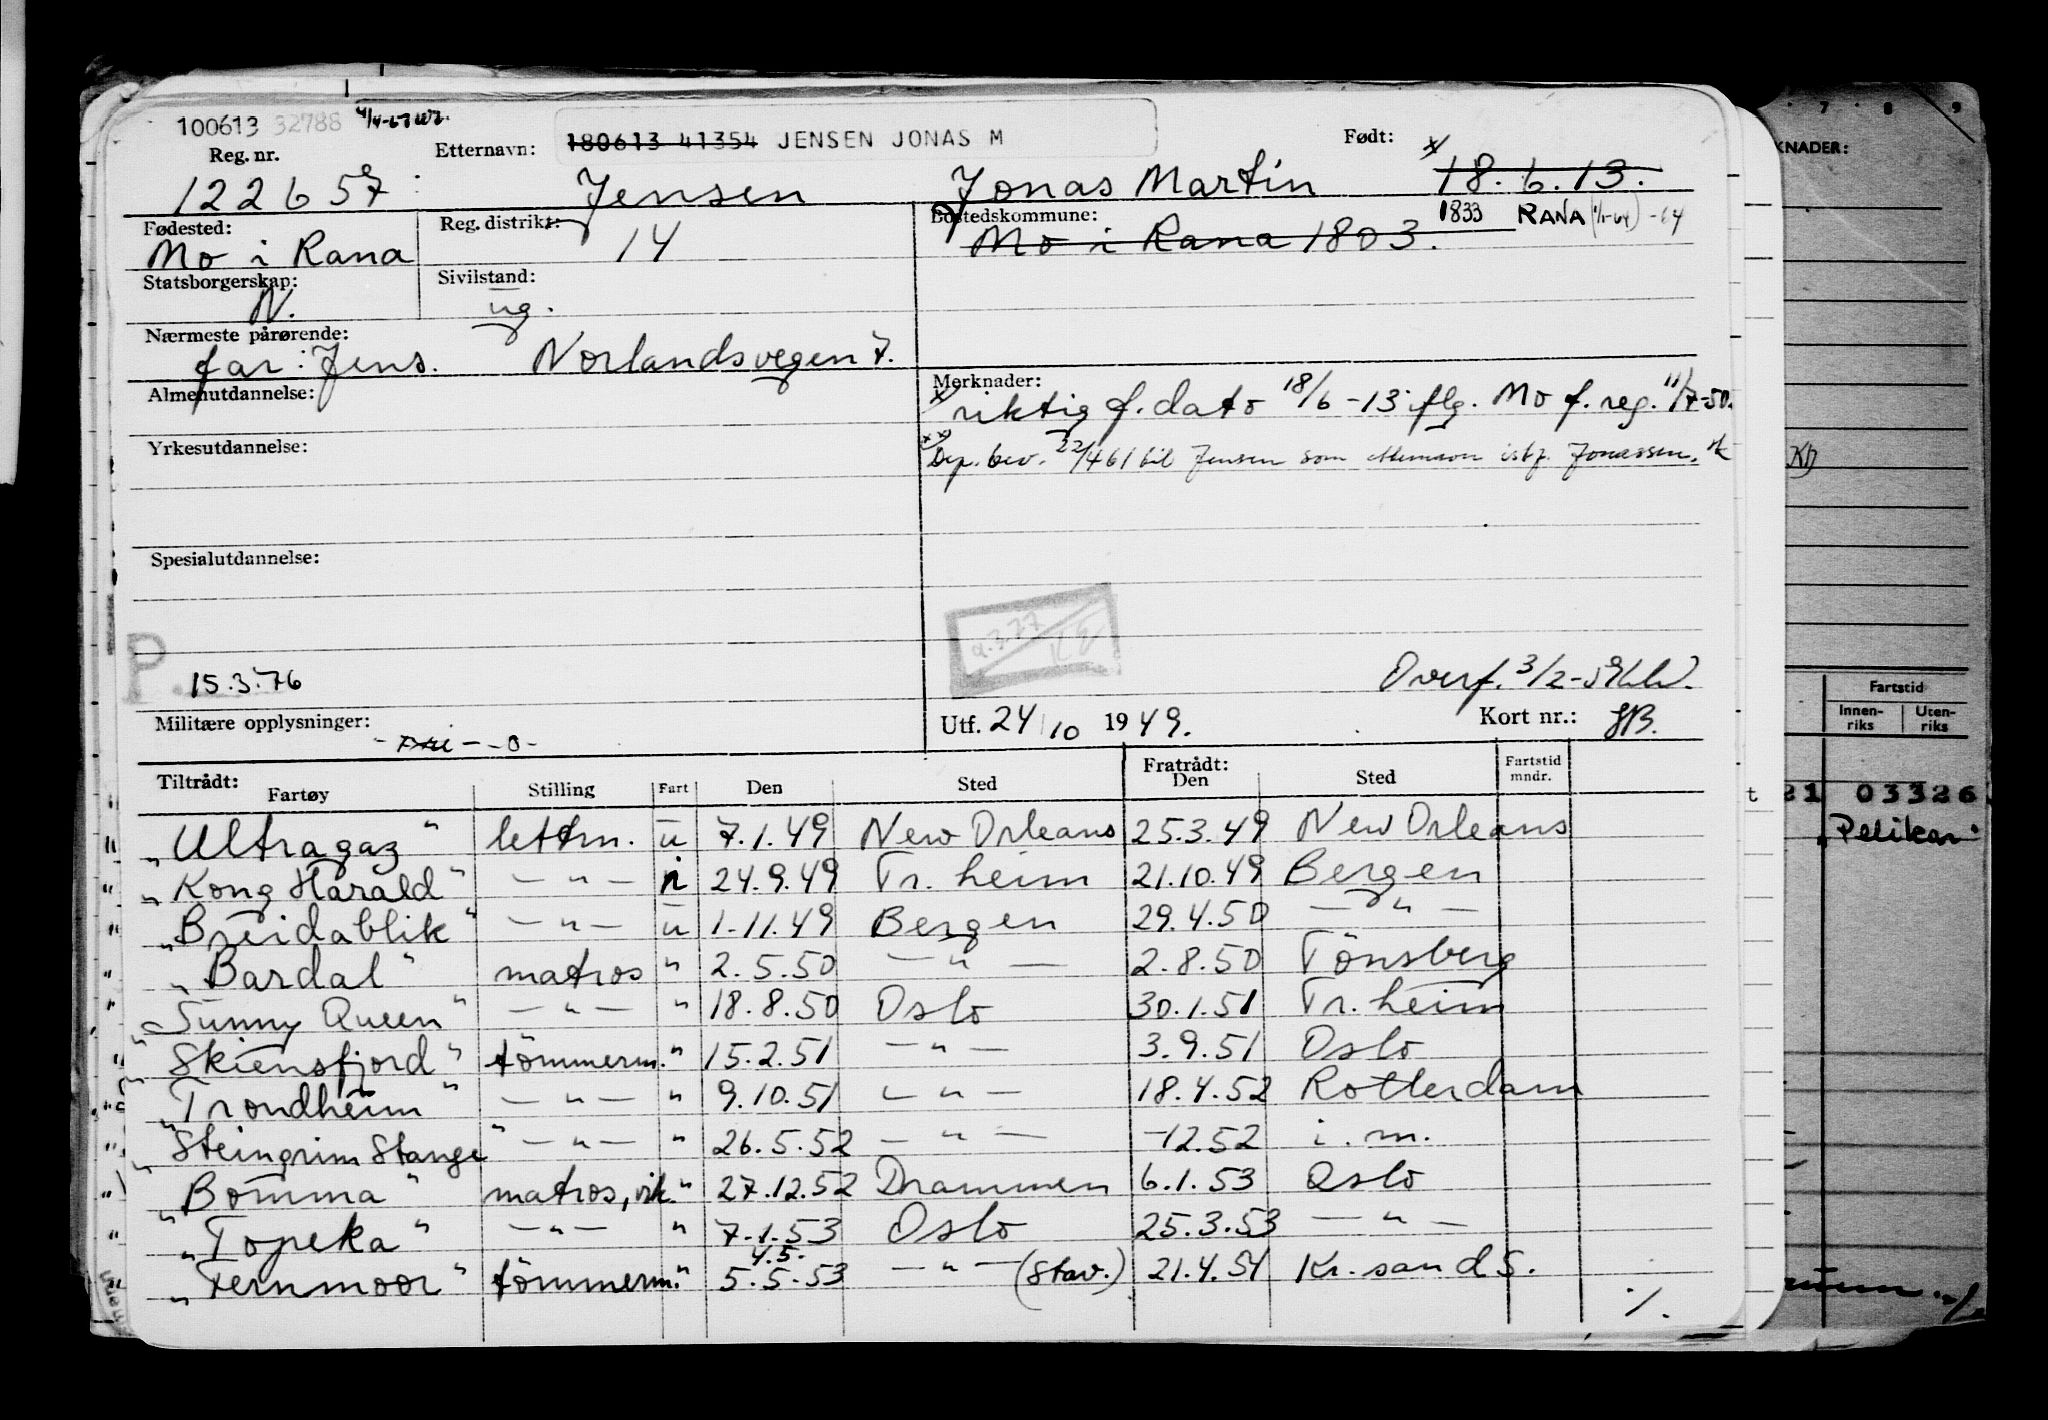 100613 32788
Reg. nr. Etternavn: 180613 41354 JENSEN JONAS M Født:
122657 Jensen Jonas Martin x 18.6.13.
Fødested: Reg. distrikt: Bostedskommune: 1833 RANA (1/1-64) -64
Mo i Rana 14 Mo i Rana 1803.
Statsborgerskap: Sivilstand:
N. ug.
Nærmeste pårørende:
far: Jens. Norlandsvegen 7.
Almenutdannelse: Merknader:
x riktig f. dato 18/6-13 iflg. Mo f. reg. 11/7-50.
Yrkesutdannelse: xx Dep. bev. 22/4 61 til Jensen som etternavn istf. Jonassen.
Spesialutdannelse:
P.
15.3.76 Overf. 3/2-59
Militære opplysninger: -0- Utf. 24/10 1949. Kort nr.:
Tiltrådt: Fratrådt: Fartstid
Fartøy Stilling Fart Den Sted Den Sted mndr.
"Ultragaz" lettm. u 7.1.49 New Orleans 25.3.49 New Orleans
"Kong Harald" — " — i 24.9.49 Tr. heim 21.10.49 Bergen
"Breidablik" — " — u 1.11.49 Bergen 29.4.50 — " —
"Bardal" matros " 2.5.50 — " — 2.8.50 Tönsberg
"Sunny Queen" — " — " 18.8.50 Oslo 30.1.51 Tr. heim
"Skiensfjord" tömmerm. " 15.2.51 — " — 3.9.51 Oslo
"Trondheim" — " — " 9.10.51 — " — 18.4.52 Rotterdam
"Steingrim Stange" — " — " 26.5.52 — " — -12.52 i. m.
"Bomma" matros, vik. " 27.12.52 Drammen 6.1.53 Oslo
"Topeka" — " — " 7.1.53 Oslo 25.3.53 — " —
4.5.
"Fernmoor" tömmerm. " 5.5.53 — " — (Stav.) 21.4.54 Kr. sand S.
./.
7 8 9
KNADER:
Fartstid
Innen- Uten-
riks riks
t 21 03326
"Pelikan"